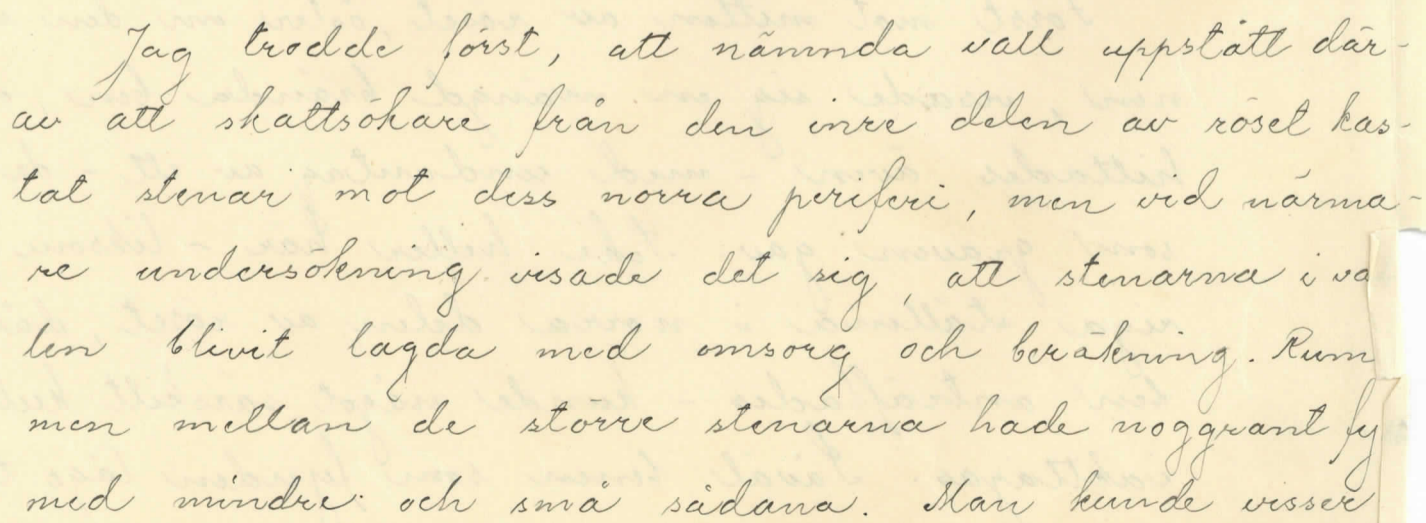 Jag trodde först, att nämnda vall uppstått där-
av att skattsökare från den inre delen av röset kas-
tat stenar mot dess norra periferi, men vid närma-
re undersökning visade det sig, att stenarna i va
len blivit lagda med omsorg och beräkning. Rum
men mellan de större stenarna hade noggrant fy
med mindre och små sådana. Man kunde visser